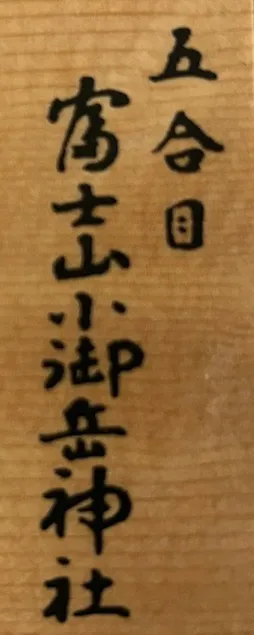 五合目
富士山小御岳神社